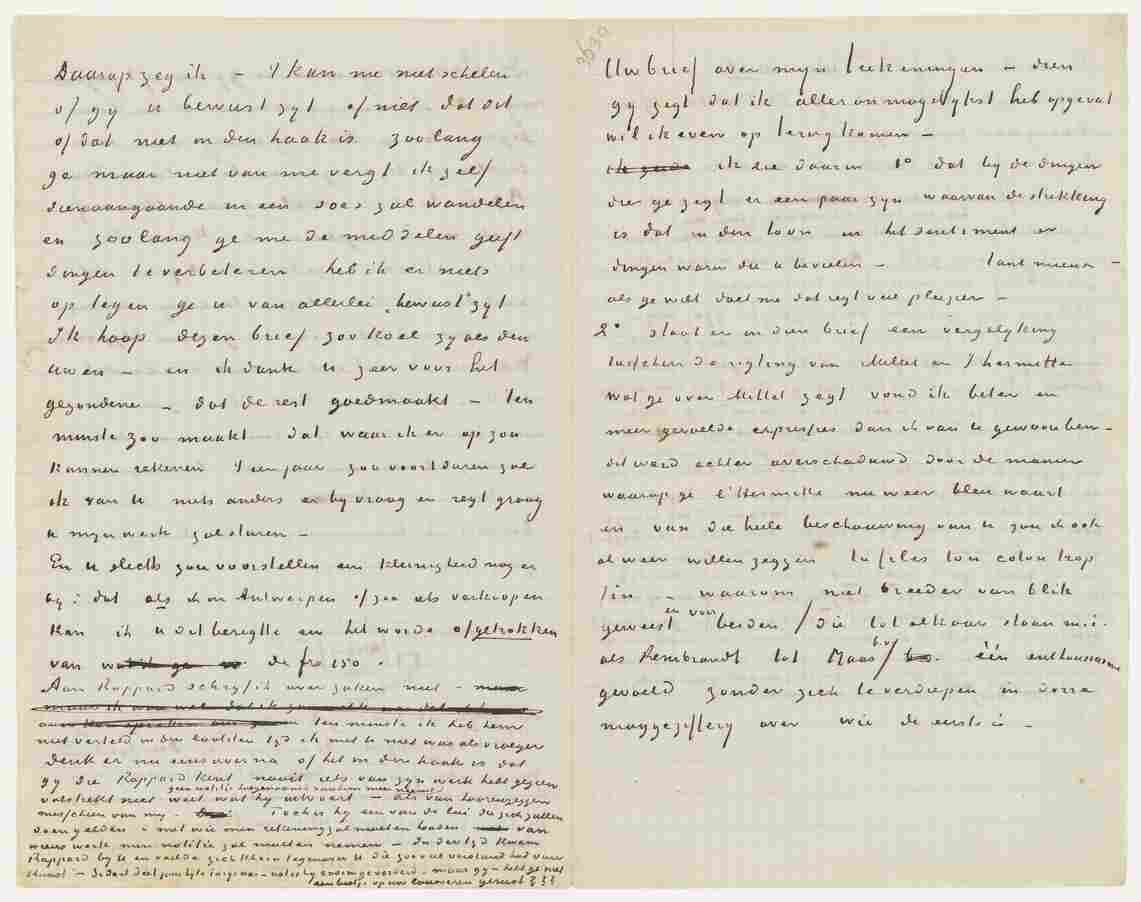 Daarop zeg ik – 't kan me niet schelen
of gy U bewust zyt of niet dat dit
of dat niet in den haak is. zoolang
ge maar niet van me vergt ik zelf
dienaangaande in een does zal wandelen
en zoolang ge me de middelen geeft
dingen te verbeteren heb ik er niets
op tegen ge U van allerlei „bewust" zyt
Ik hoop dezen brief zoo koel zy als den
uwen – en ik dank U zeer voor het
gezondene – dat de rest goedmaakt – ten
minste zoo maakt dat waar ik er op zou
kunnen rekenen 't een jaar zou voortduren zal
ik van U niets anders er by vraag en regt graag
U myn werk zal sturen –
En U slechts zou voorstellen een kleinigheid nog er
by: dat als ik in Antwerpen of zoo iets verkoopen
kan ik U dit berigtte en het worde afgetrokken
van de frs 150.
Aan Rappard schryf ik over zaken niet –
ten minste ik heb hem
niet verteld in den laatsten tyd ik met U niet was als vroeger
Denk er nu eens over na of het in den haak is dat
gy die Rappard kent nooit iets van zyn werk hebt gezien
volstrekt niet weet wat hy uitvoert – als van hooren zeggen
misschien van my. Toch is hy een van de lui die zich zullen
doen gelden – met wie men rekening zal moeten houden van
wiens werk men notitie zal moeten nemen – In der tyd kwam
Rappard by U en voelde zich klein tegenover U die zooveel verstand had van
kunst – maar gy – hebt ge niet
een beetje op uw lauweren gerust???
3030
Uw brief over myn teekeningen – dien
gy zegt dat ik alleronmogelykst heb opgevat
wil ik even op terug komen –
ik zie daarin 1° dat by de dingen
die ge zegt er een paar zyn waarvan de strekking
is dat in den toon en het sentiment er
dingen waren die U bevielen – tant mieux –
als ge wilt doet me dat regt veel plezier –
2° staat er in dien brief een vergelyking
tusschen de ryling van Millet en Lhermitte
Wat ge over Millet zegt vond ik beter en
meer gevoelde expressies dan ik van U gewoon ben –
dit werd echter overschaduwd door de manier
waarop ge l'Hermitte nu weer bleu waart
en van die heele beschouwing van U zou ik ook
al weer willen zeggen tu files ton coton trop
fin – waarom niet breeder van blik
geweest en voor beiden / die tot elkaar staan m.i.
als Rembrandt tot Maas b.v. / één enthousiasme
gevoeld zonder zich te verdiepen in dorre
muggeziftery over wie de eerste is –